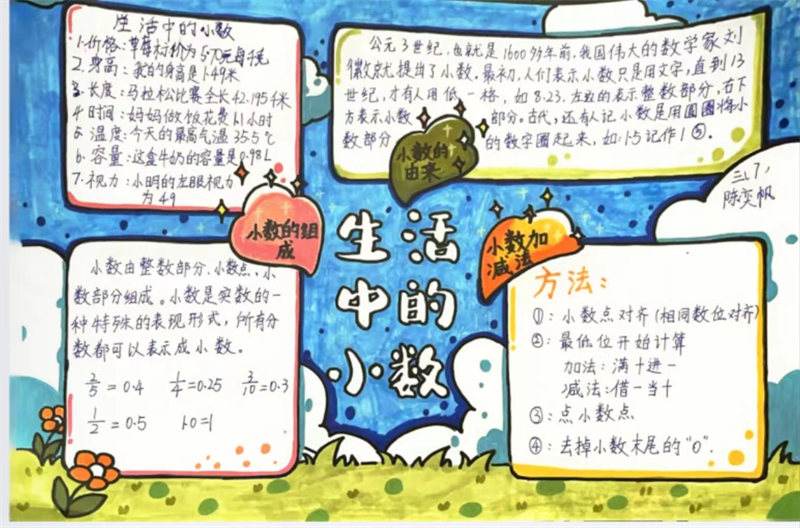 生活中的小数
1.价格:草莓村价为5.7元每千克
2.身高:我的身高是1.49米
3.长度:马拉松比赛全长42.195千米
4.时间:妈妈做饭花费1.1小时
5.温度:今天的最高气温35.5℃
6.容量:这盒牛奶的容量是0.98L
7.视力:小明的左眼视力
为4.9
公元3世纪,也就是1600多年前,我国伟大的数学家刘
徽就提出了小数。最初,人们表示小数只是用文字,直到13
世纪,才有人用低一格,如8.23,左边的表示整数部分,右下
方表示小数部分。古代,还有人记小数是用圆圈将小
数部分的数字圈起来,如:1.5记作1⑤。
小数的
由来
三.7.
陈奕帆
小数的组
成
小数由整数部分、小数点、小
数部分组成。小数是实数的一
种特殊的表现形式,所有分
数都可以表示成小数。
2/5=0.4 1/4=0.25 3/10=0.3
1/2=0.5 1.0=1
生活
中的
小数
小数加
减法
方法:
①:小数点对齐(相同数位对齐)
②:最低位开始计算
加法:满十进一
减法:借一当十
③:点小数点
④:去掉小数末尾的“0”.